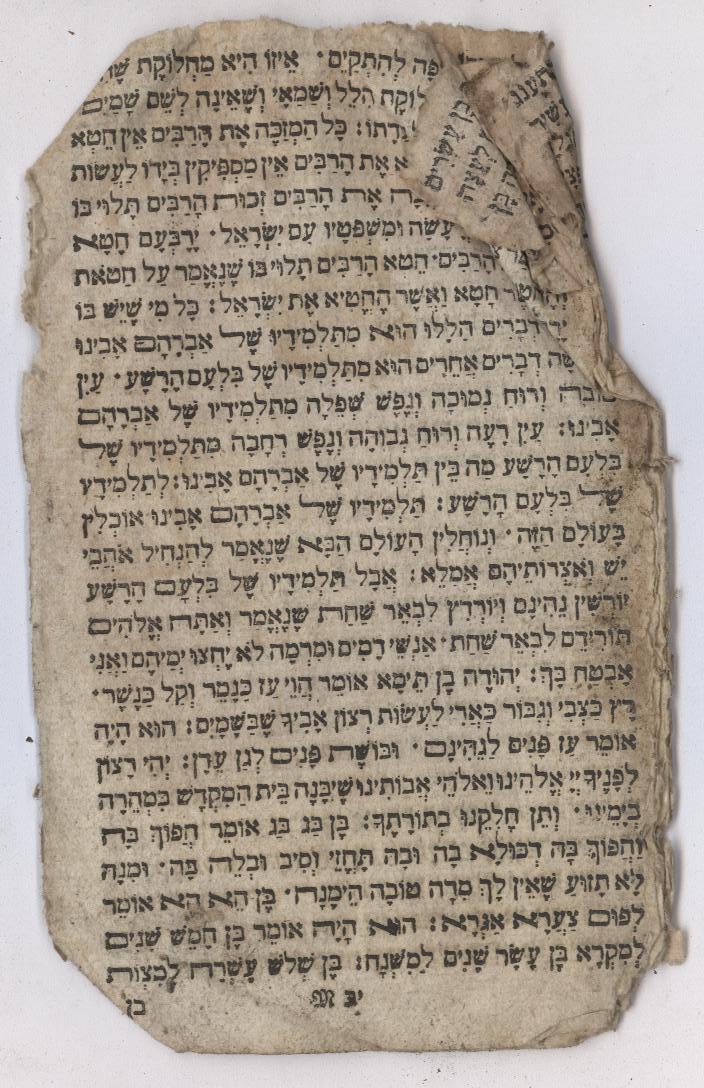 יפה להתקים· איזו היא מחלוקת
הלל ושמאי ושאינה לשם שמים
כל המזכה את הרבים אין חטא
את הרבים אין מספיקין בידו לעשות
את הרבים זכות הרבים תלוי בו
עשה ומשפטיו עם ישראל· ירבעם חטא
הרבים· חטא הרבים תלוי בו שנאמר על חטאת
חטא ואשר החטיא את ישראל: כל מי שיש בו
דברים הללו הוא מתלמידיו של אברהם אבינו
דברים אחרים הוא מתלמידיו של בלעם הרשע· עין
ורוח נמוכה ונפש שפלה מתלמידיו של אברהם
אבינו: עין רעה ורוח גבוהה ונפש רחבה מתלמידיו של
בלעם הרשע מה בין תלמידיו של אברהם אבינו: לתלמידיו
של בלעם הרשע: תלמידיו של אברהם אבינו אוכלין
בעולם הזה· ונוחלין העולם הבא שנאמר להנחיל אהבי
יש ואצרותיהם אמלא: אבל תלמידיו של בלעם הרשע
יורשין גהינם ויורדין לבאר שחת שנאמר ואתה אלהים
תורידם לבאר שחת· אנשי דמים ומרמה לא יחצו ימיהם ואני
אבטח בך: יהודה בן תימא אומר הוי עז כנמר וקל כנשר·
רץ כצבי וגבור כארי לעשות רצון אביך שבשמים: הוא היה
אומר עז פנים לגהינם· ובושת פנים לגן עדן: יהי רצון
לפניך יי אלהינו ואלהי אבותינו שיבנה בית המקדש במהרה
בימינו· ותן חלקנו בתורתך: בן בג בג אומר הפוך בה
והפוך בה דכולא בה ובה תחזי וסיב ובלה בה· ומנה
לא תזוע שאין לך מדה טובה הימנה· בן הא הא אומר
לפום צערא אגרא: הוא היה אומר בן חמש שנים
למקרא בן עשר שנים למשנה: בן שלש עשרה למצות
יב
בן
בן עשרים